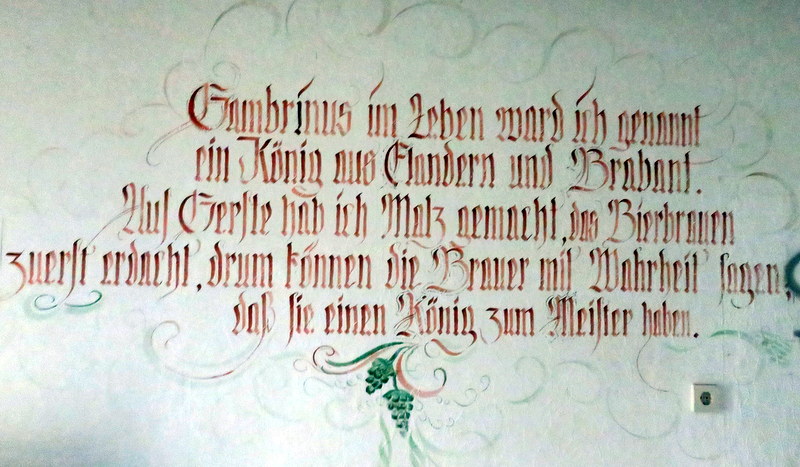 Gambrinus im Leben ward ich genannt
ein König aus Flandern und Brabant.
Aus Gerste hab ich Malz gemacht, das Bierbrauen
zuerst erdacht, drum können die Brauer mit Wahrheit sagen,
daß sie einen König zum Meister haben.